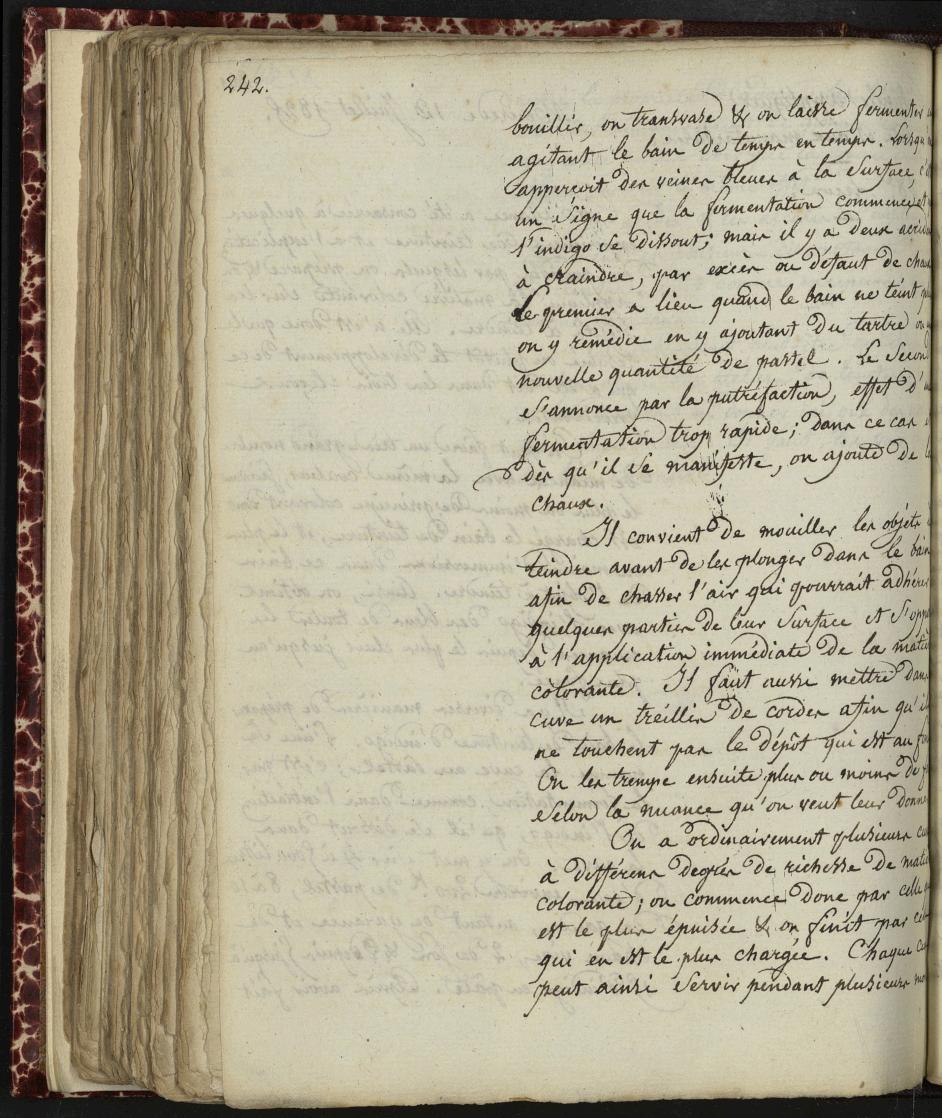 242.
bouillir, on transvase & on laisse fermenter
agitant le bain de temps en temps. Lorsqu
apperçoit des veines bleues à la surface, c
un signe que la fermentation commence, et
l'indigo se dissout; mais il y a deux accid
à craindre, par excès ou défaut de chau
Le premier a lieu quand le bain ne teint p
on y rémédie en y ajoutant du tartre ou
nouvelle quantité de pastel. Le Secon
s'annonce par la putréfaction, effet d'u
fermentation trop rapide; dans ce cas
dès qu'il se manifeste, on ajoute de l
chaux.
Il convient de mouiller les objets
teindre avant de les plonger dans le bain
afin de chasser l'air qui pourrait adhére
quelques parties de leur surface et s'oppo
à l'application immédiate de la matiè
colorante. Il faut aussi mettre dans
cuve un tréillis de cordes afin qu'il
ne touchent pas le dépôt qui est au fo
On les trempe ensuite plus ou moins de f
selon la nuance qu'on veut leur donne
On a ordinairement plusieurs cu
à différens degrés de richesse de mati
colorante; on commence donc par celle q
est le plus épuisée & on finit par cel
qui en est le plus chargée. Chaque cu
peut ainsi servir pendant plusieurs mo